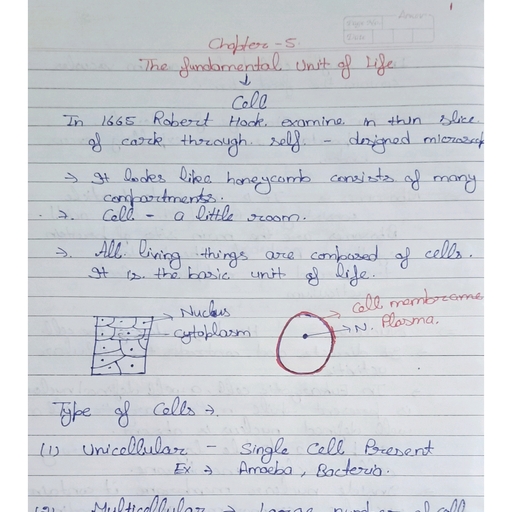 Chapter - 5
The fundamental Unit of Life
↓
Cell
In 1665 Robert Hook examine in thin slice
of carck through self - designed microscop
→ It lookes like honeycomb consists of many
compartments.
→ Cell - a little room.
→ All living things are combosed of cells.
It is the basic unit of life.
→ Nucleus
cytoplasm
→ Cell membrame
→ N. Plasma.
Type of Cells →
(1) Unicellular - Single Cell Present
Ex → Amoeba, Bacteria.
Multicellular →